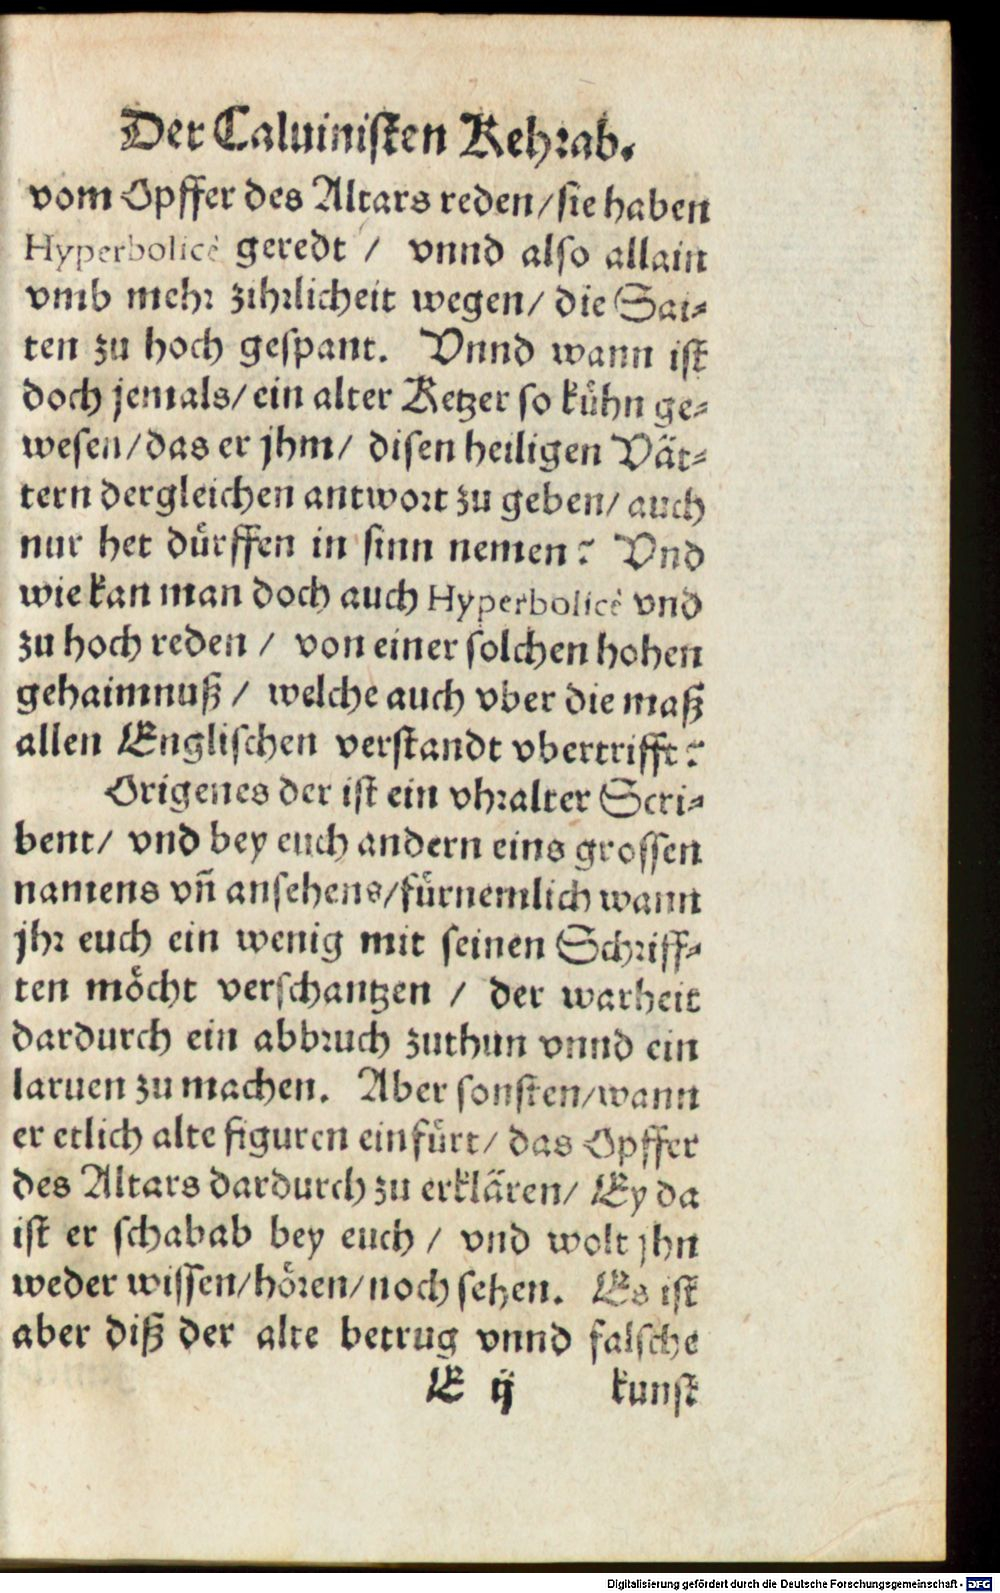 Der Caluinisten Kehrab.
vom Opffer des Altars reden/sie haben
Hyperbolicè geredt / vnnd also allain
vmb mehr zihrlicheit wegen/ die Sai-
ten zu hoch gespant. Vnnd wann ist
doch jemals/ ein alter Ketzer so kühn ge-
wesen/das er jhm/ disen heiligen Vät-
tern dergleichen antwort zu geben/ auch
nur het dürffen in sinn nemen? Vnd
wie kan man doch auch Hyperbolicè vnd
zu hoch reden / von einer solchen hohen
gehaimnuß / welche auch vber die maß
allen Englischen verstandt vbertrifft?
Origenes der ist ein vhralter Scri-
bent/ vnd bey euch andern eins grossen
namens vñ ansehens/fürnemlich wann
jhr euch ein wenig mit seinen Schriff-
ten möcht verschantzen / der warheit
dardurch ein abbruch zuthun vnnd ein
laruen zu machen. Aber sonsten/wann
er etlich alte figuren einfürt/ das Opffer
des Altars dardurch zu erklären/ Ey da
ist er schabab bey euch / vnd wolt jhn
weder wissen/hören/noch sehen. Es ist
aber diß der alte betrug vnnd falsche
E ij kunst
Digitalisierung gefördert durch die Deutsche Forschungsgemeinschaft - DFG